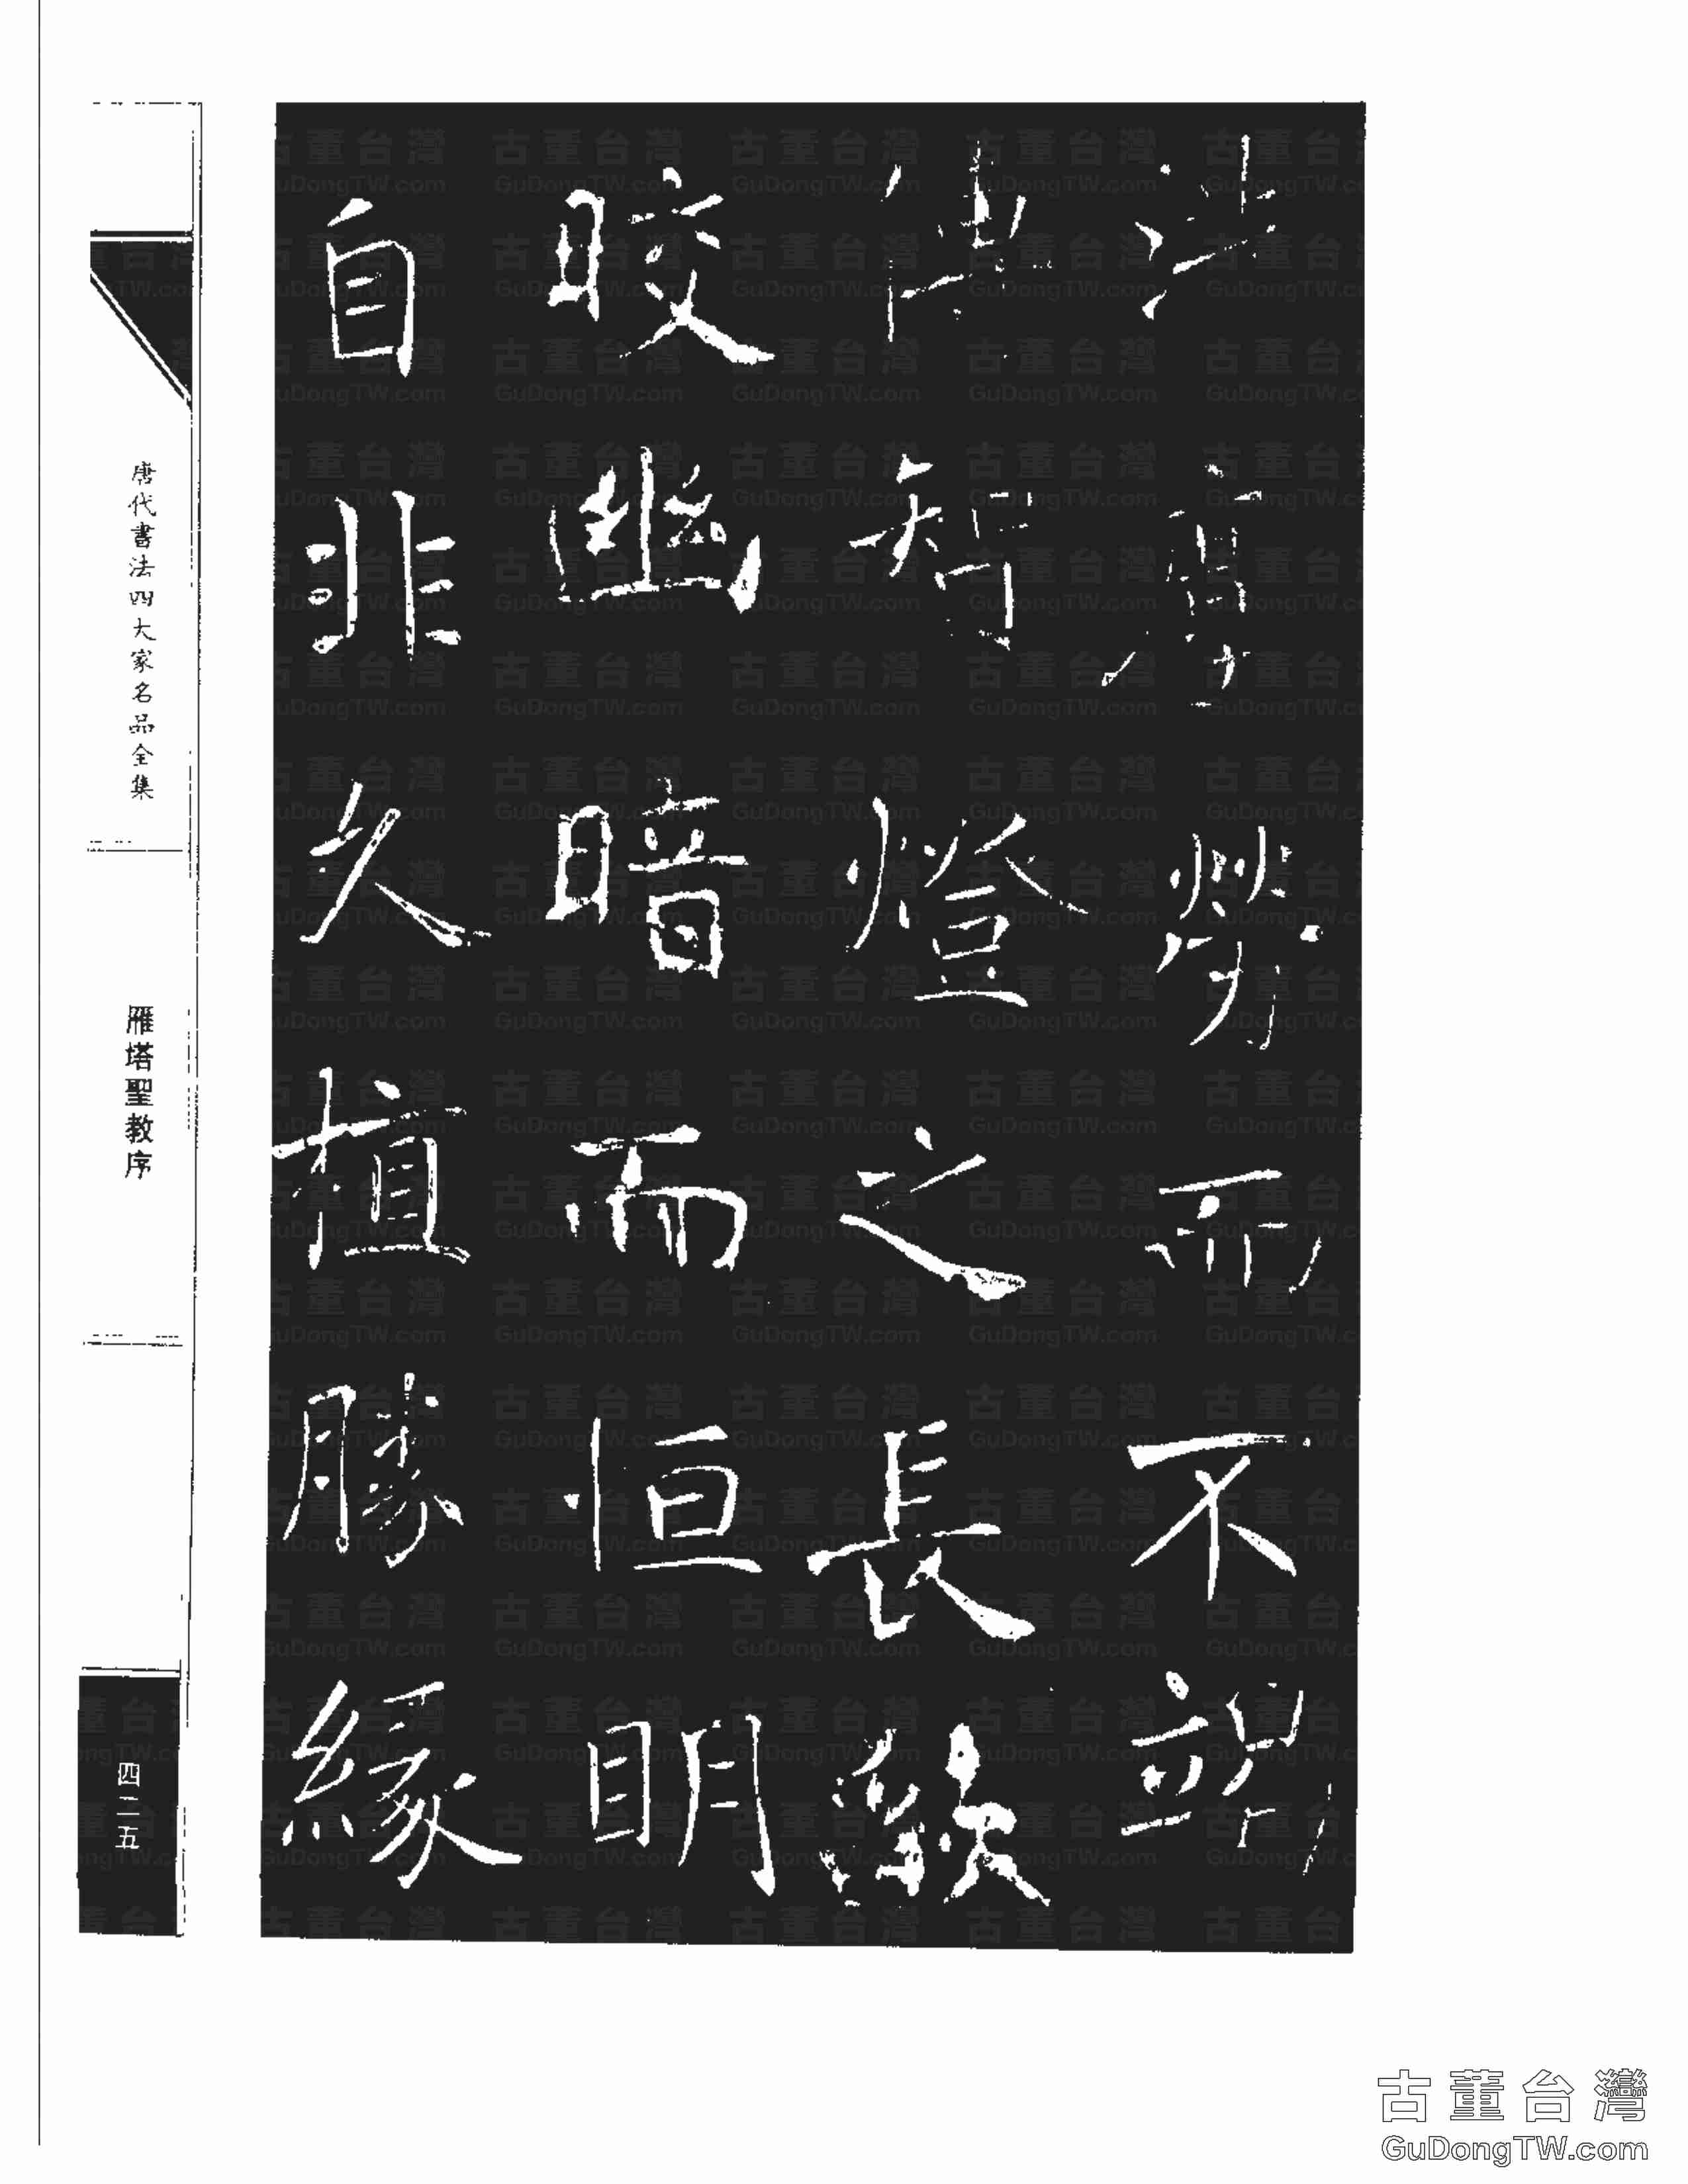 洗塵勞而不竭
傳智燈之長燄
晈幽暗而恒明
自非久植勝緣
唐代書法四大家名品全集
雁塔聖教序
四二五
古董台灣
GuDongTW.com